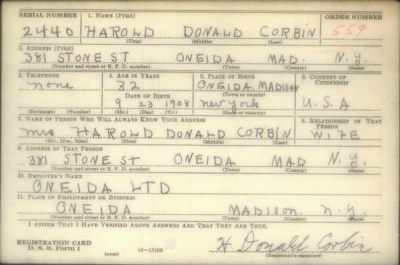 SERIAL NUMBER 1. NAME (Print) ORDER NUMBER
2440 HAROLD DONALD CORBIN 559
(First) (Middle) (Last)
2. ADDRESS (Print)
381 STONE ST ONEIDA MAD. N.Y.
(Number and street or R. F. D. number) (Town) (County) (State)
3. TELEPHONE 4. AGE IN YEARS 5. PLACE OF BIRTH 6. COUNTRY OF CITIZENSHIP
none 32 ONEIDA, MADISON
DATE OF BIRTH (Town or county)
9 23 1908 New York U.S.A
(Exchange) (Number) (Mo.) (Day) (Yr.) (State or country)
7. NAME OF PERSON WHO WILL ALWAYS KNOW YOUR ADDRESS 8. RELATIONSHIP OF THAT PERSON
Mrs HAROLD DONALD CORBIN WIFE
(Mr., Mrs., Miss) (First) (Middle) (Last)
9. ADDRESS OF THAT PERSON
381 STONE St ONEIDA MAD N.Y.
(Number and street or R. F. D. number) (Town) (County) (State)
10. EMPLOYER'S NAME
ONEIDA LTD
11. PLACE OF EMPLOYMENT OR BUSINESS
ONEIDA MADISON N.Y.
(Number and street or R. F. D. number) (Town) (County) (State)
I AFFIRM THAT I HAVE VERIFIED ABOVE ANSWERS AND THAT THEY ARE TRUE.
REGISTRATION CARD
D. S. S. Form 1 (over) 16-17105
H Donald Corbin
(Registrant's signature)